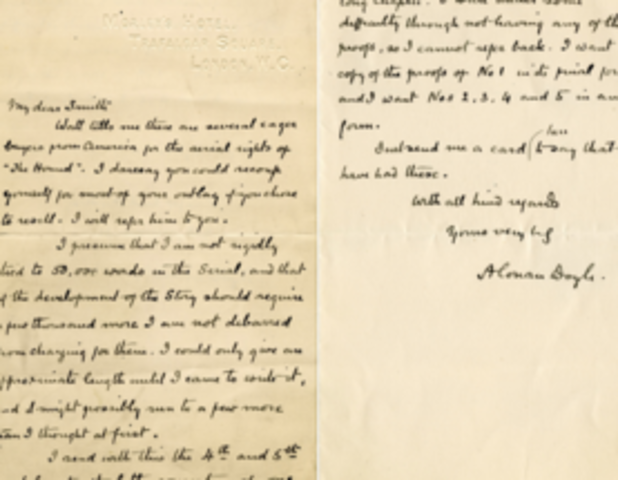 Morley's Hotel,
Trafalgar Square,
London, W.C.
My dear Smith
Watt tells me there are several eager
buyers from America for the serial rights of
"The Hound". I daresay you could recoup
yourself for most of your outlay if you chose
to resell. I will refer him to you.
I presume that I am not rigidly
tied to 50,000 words in the Serial, and that
if the development of the Story should require
a few thousand more I am not debarred
from charging for them. I could only give an
approximate length until I came to write it,
and I might possibly run to a few more
than I thought at first.
I send with this the 4th and 5th
long chapter. I
difficulty through not having any of the
proofs, so I cannot refer back. I want
copy of the proofs of No 1 in its final
and I want Nos 2, 3, 4 and 5 in
form.
Just send me a card to say that
have had these.
With all kind regards
Yours very
A Conan Doyle.